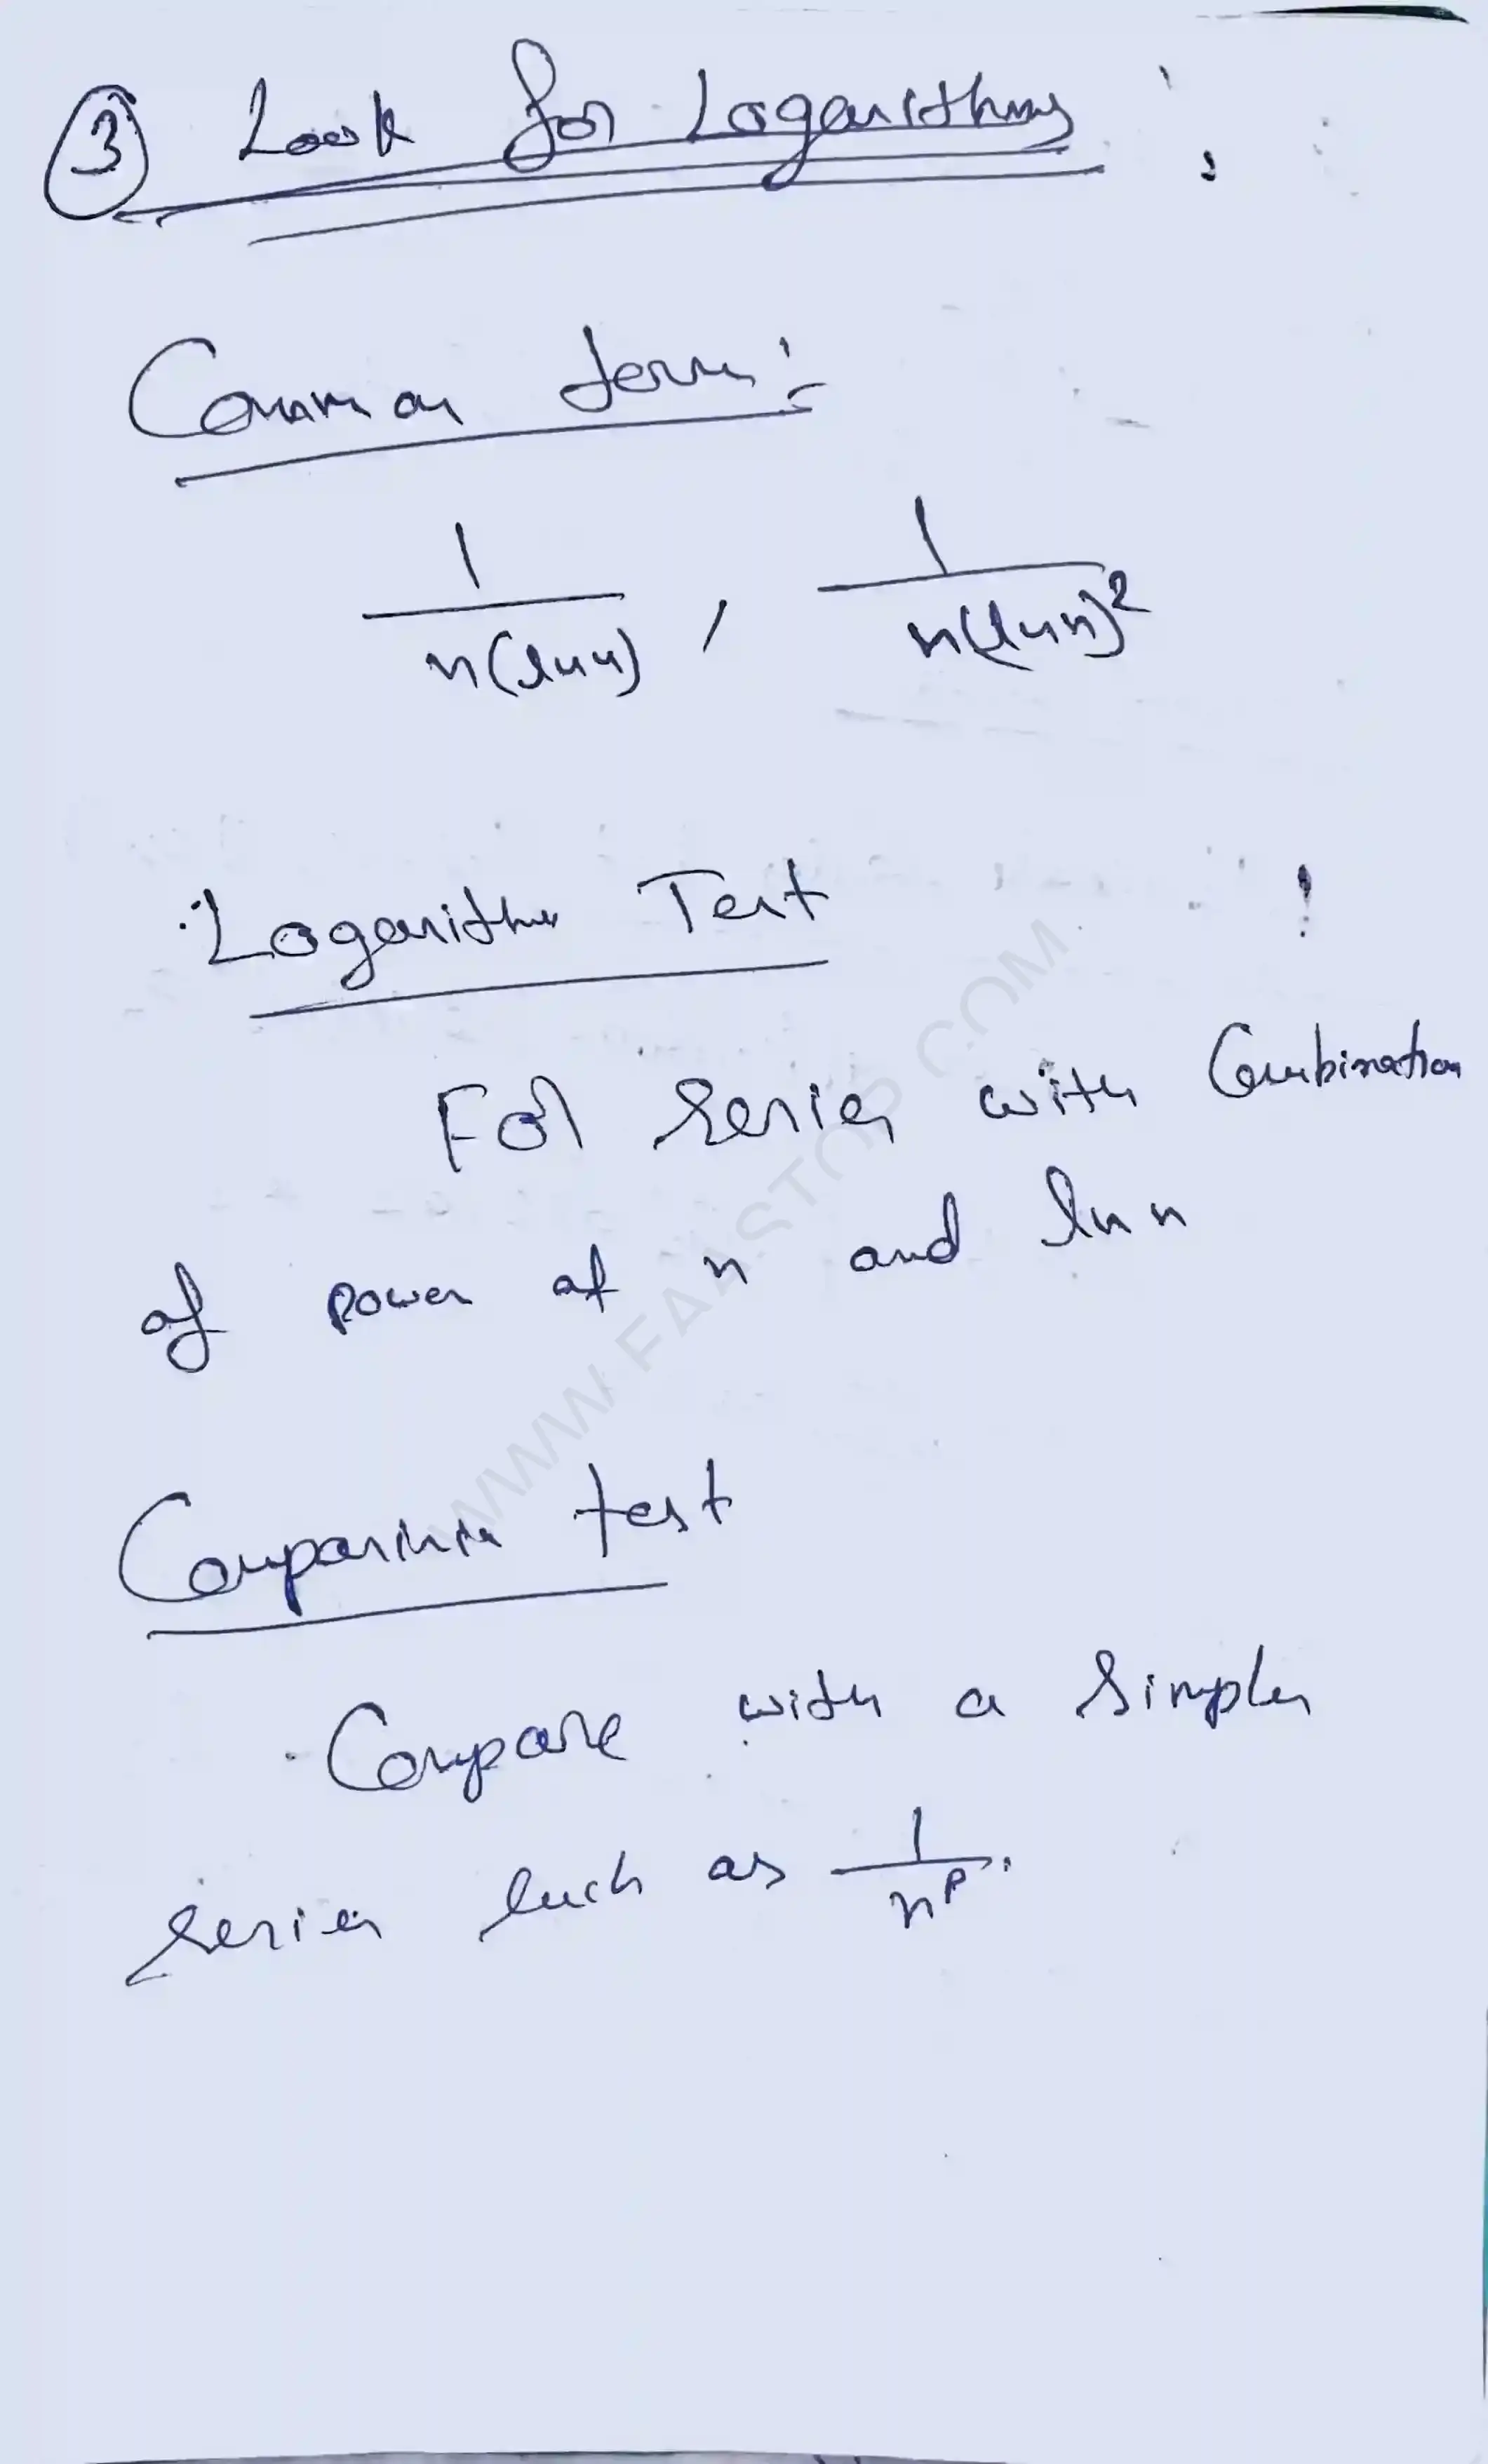 3 Look for Logarithms :
Common form :
1/n(ln n) , 1/n(ln n)²
Logarithm Test
For series with Combination
of power of n and ln n
Comparison test
Compare with a simpler
series such as 1/n^p.
WWW.FAASTOP.COM